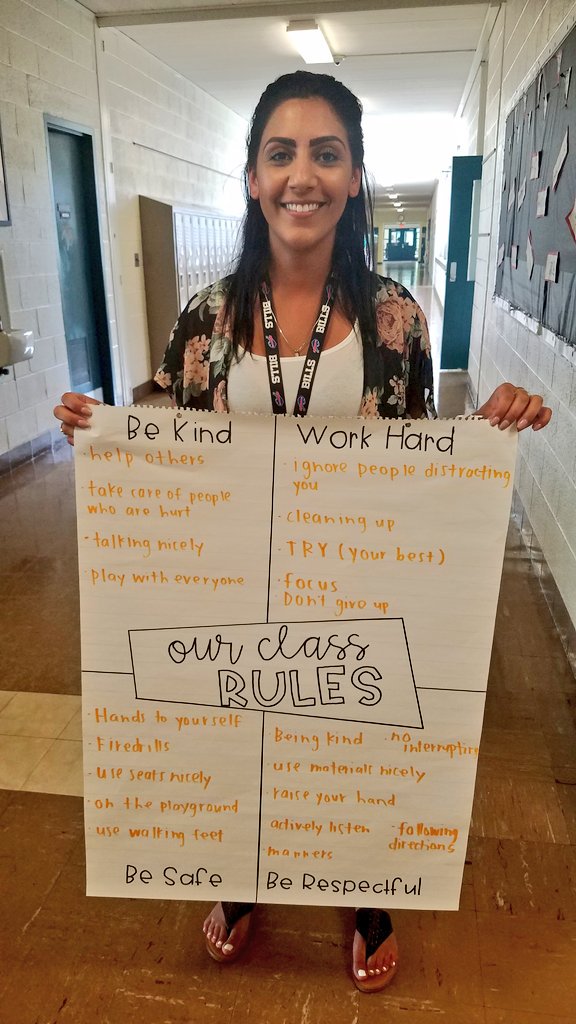 BILLS
BILLS
BILLS
BILLS
Be Kind
help others
take care of people
who are hurt
talking nicely
play with everyone
Work Hard
ignore people distracting
you
cleaning up
TRY (your best)
focus
Don't give up
our class
RULES
Hands to yourself
Firedrills
use seats nicely
on the playground
use walking feet
Be Safe
Being kind
no
interrupting
use materials nicely
raise your hand
actively listen
following
directions
manners
Be Respectful